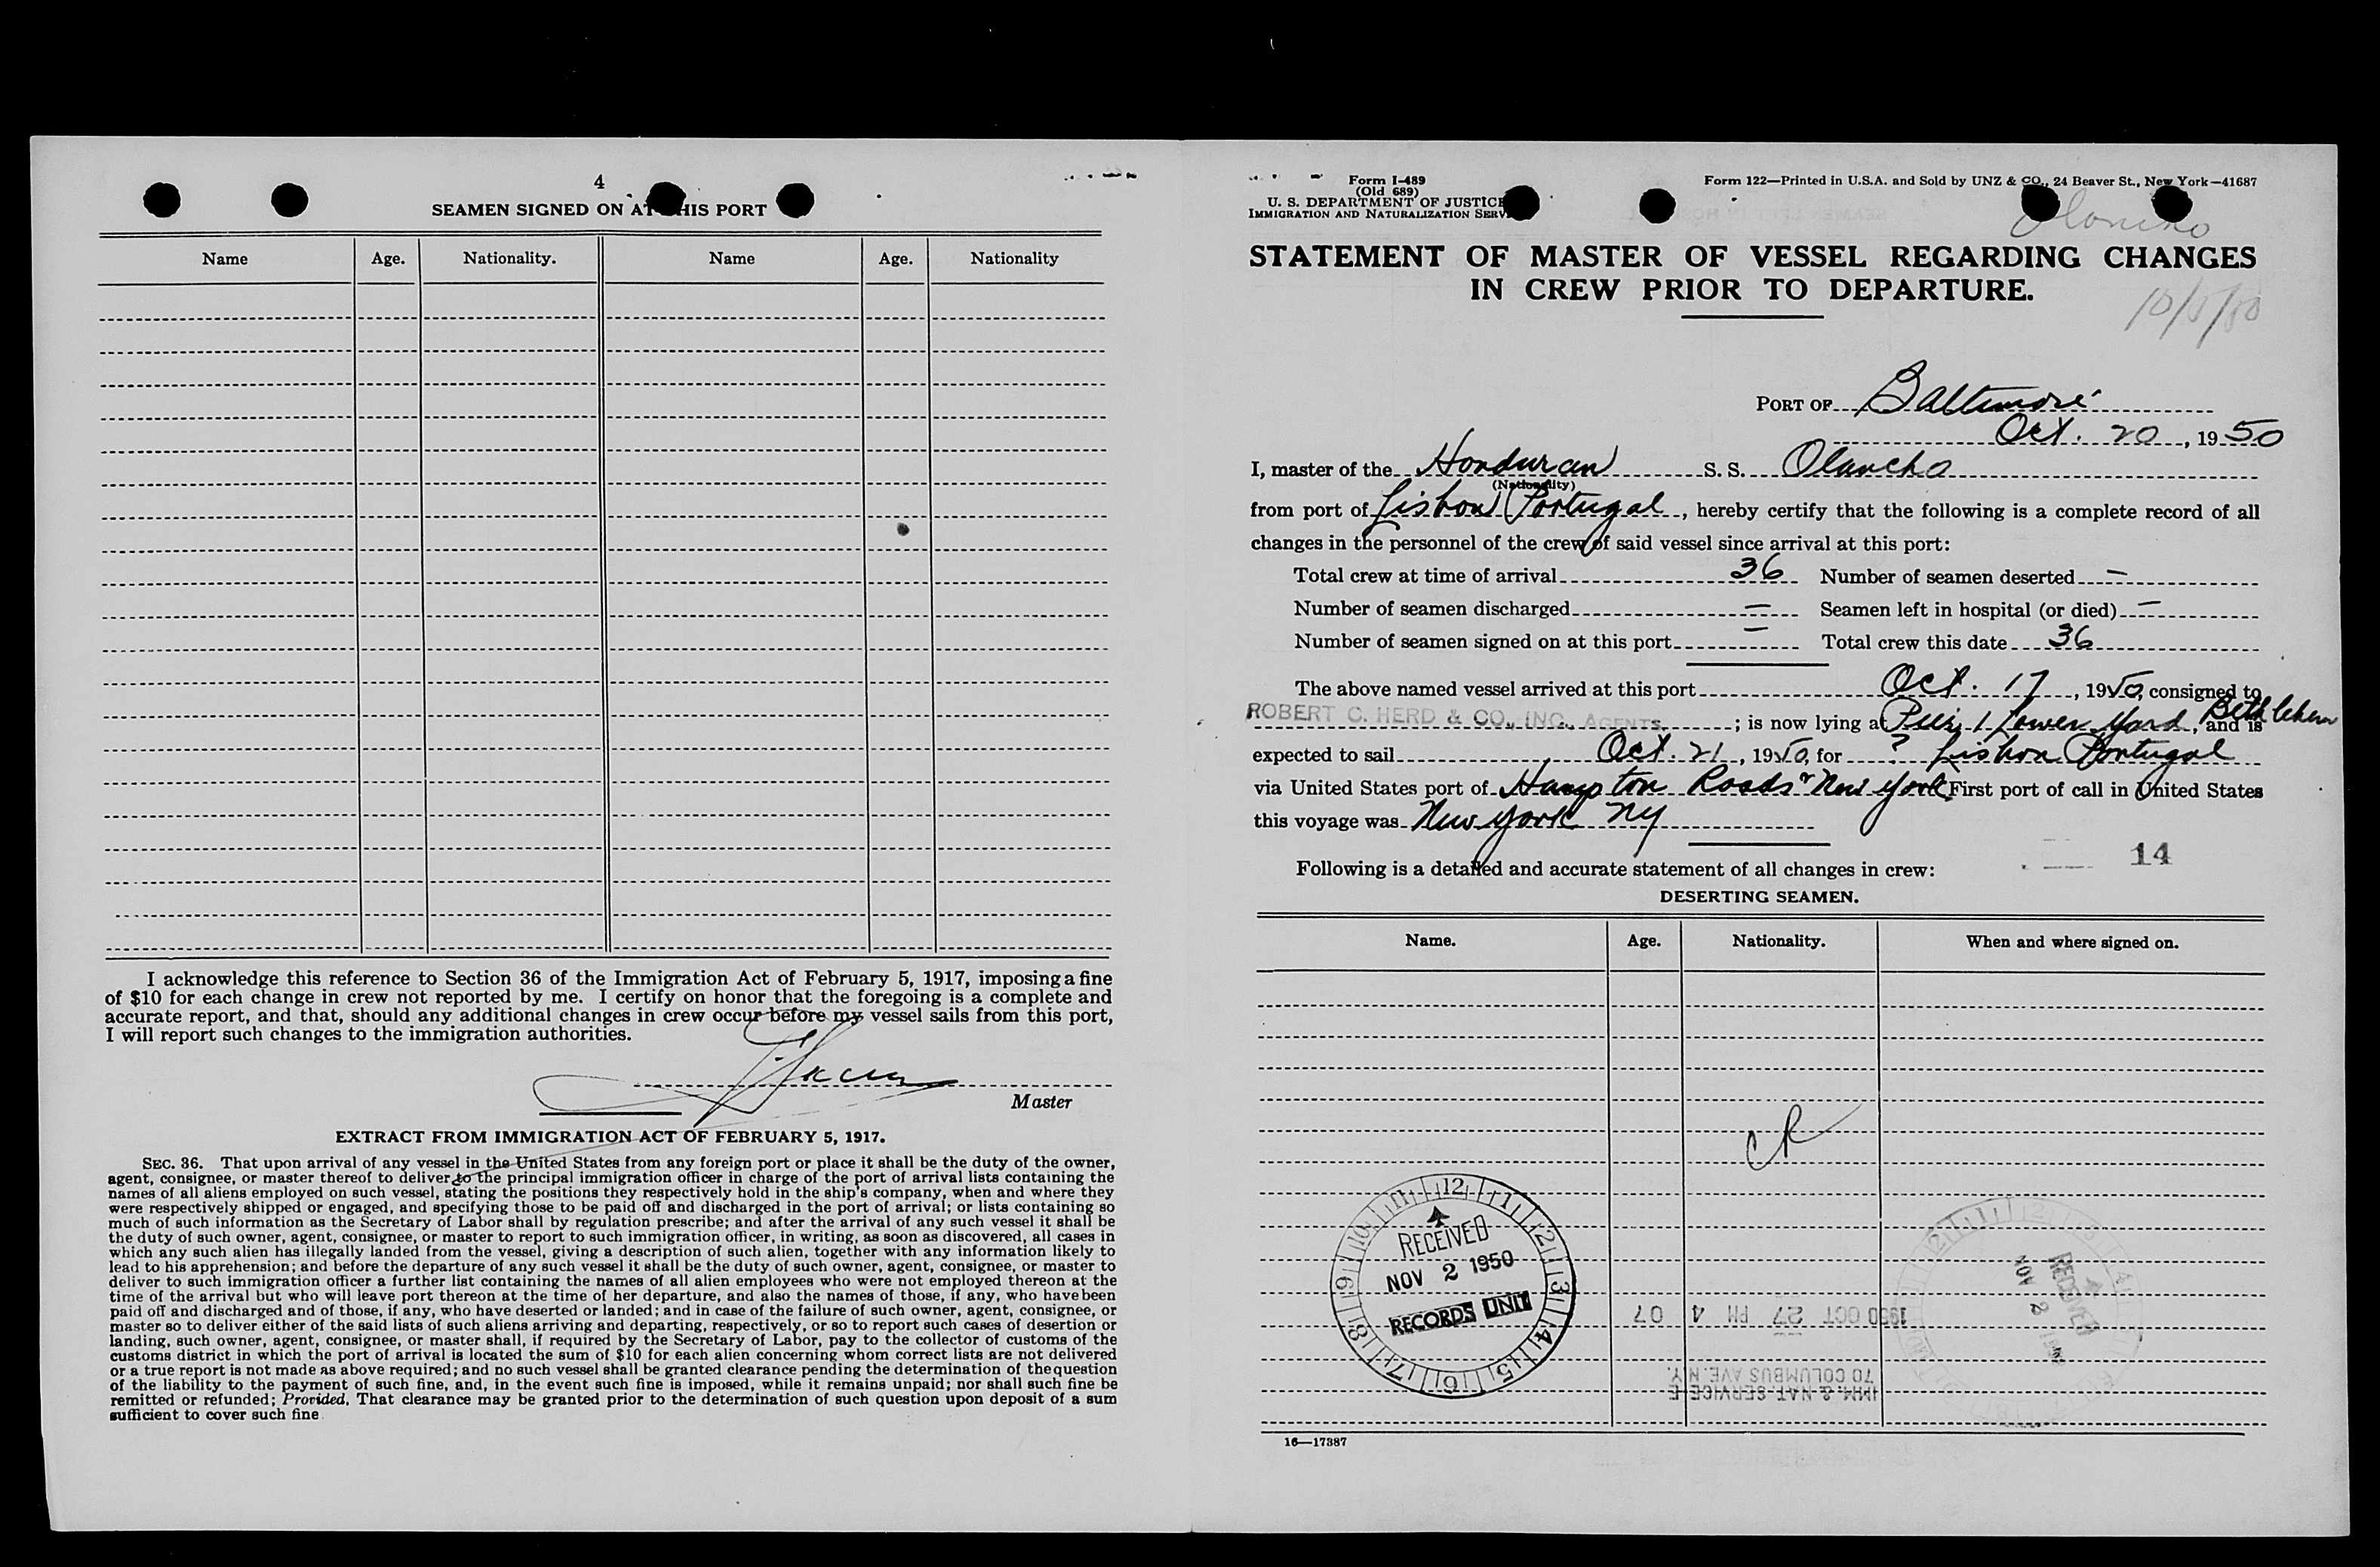 4
SEAMEN SIGNED ON AT THIS PORT
Name Age. Nationality. Name Age. Nationality
I acknowledge this reference to Section 36 of the Immigration Act of February 5, 1917, imposing a fine
of $10 for each change in crew not reported by me. I certify on honor that the foregoing is a complete and
accurate report, and that, should any additional changes in crew occur before my vessel sails from this port,
I will report such changes to the immigration authorities.
Master
EXTRACT FROM IMMIGRATION ACT OF FEBRUARY 5, 1917.
SEC. 36. That upon arrival of any vessel in the United States from any foreign port or place it shall be the duty of the owner,
agent, consignee, or master thereof to deliver to the principal immigration officer in charge of the port of arrival lists containing the
names of all aliens employed on such vessel, stating the positions they respectively hold in the ship's company, when and where they
were respectively shipped or engaged, and specifying those to be paid off and discharged in the port of arrival; or lists containing so
much of such information as the Secretary of Labor shall by regulation prescribe; and after the arrival of any such vessel it shall be
the duty of such owner, agent, consignee, or master to report to such immigration officer, in writing, as soon as discovered, all cases in
which any such alien has illegally landed from the vessel, giving a description of such alien, together with any information likely to
lead to his apprehension; and before the departure of any such vessel it shall be the duty of such owner, agent, consignee, or master to
deliver to such immigration officer a further list containing the names of all alien employees who were not employed thereon at the
time of the arrival but who will leave port thereon at the time of her departure, and also the names of those, if any, who have been
paid off and discharged and of those, if any, who have deserted or landed; and in case of the failure of such owner, agent, consignee, or
master so to deliver either of the said lists of such aliens arriving and departing, respectively, or so to report such cases of desertion or
landing, such owner, agent, consignee, or master shall, if required by the Secretary of Labor, pay to the collector of customs of the
customs district in which the port of arrival is located the sum of $10 for each alien concerning whom correct lists are not delivered
or a true report is not made as above required; and no such vessel shall be granted clearance pending the determination of the question
of the liability to the payment of such fine, and, in the event such fine is imposed, while it remains unpaid; nor shall such fine be
remitted or refunded; Provided, That clearance may be granted prior to the determination of such question upon deposit of a sum
sufficient to cover such fine.
Form I-489
(Old 689)
U. S. DEPARTMENT OF JUSTICE
IMMIGRATION AND NATURALIZATION SERV
Form 122—Printed in U.S.A. and Sold by UNZ & CO., 24 Beaver St., New York—41687
STATEMENT OF MASTER OF VESSEL REGARDING CHANGES
IN CREW PRIOR TO DEPARTURE.
PORT OF Baltimore
Oct. 20, 1950
I, master of the Honduran S. S. Olancho
(Nationality)
from port of Lisbon Portugal, hereby certify that the following is a complete record of all
changes in the personnel of the crew of said vessel since arrival at this port:
Total crew at time of arrival 36 Number of seamen deserted —
Number of seamen discharged — Seamen left in hospital (or died) —
Number of seamen signed on at this port — Total crew this date 36
The above named vessel arrived at this port Oct. 17, 1950, consigned to
ROBERT C. HERD & CO., INC. AGENTS; is now lying at Pier 1 Lower Yard Bethlehem, and is
expected to sail Oct. 21, 1950, for ? Lisbon Portugal
via United States port of Hampton Roads & New York. First port of call in United States
this voyage was New York NY
14
Following is a detailed and accurate statement of all changes in crew:
DESERTING SEAMEN.
Name. Age. Nationality. When and where signed on.
12 1 2 3 4 5 6 7 8 9 10 11
RECEIVED
NOV 2 1950
RECORDS UNIT
RECEIVED
NOV 2
1950 OCT 27 PM 4 07
IMM. & NAT. SERVICE
70 COLUMBUS AVE. N.Y.
16—17387